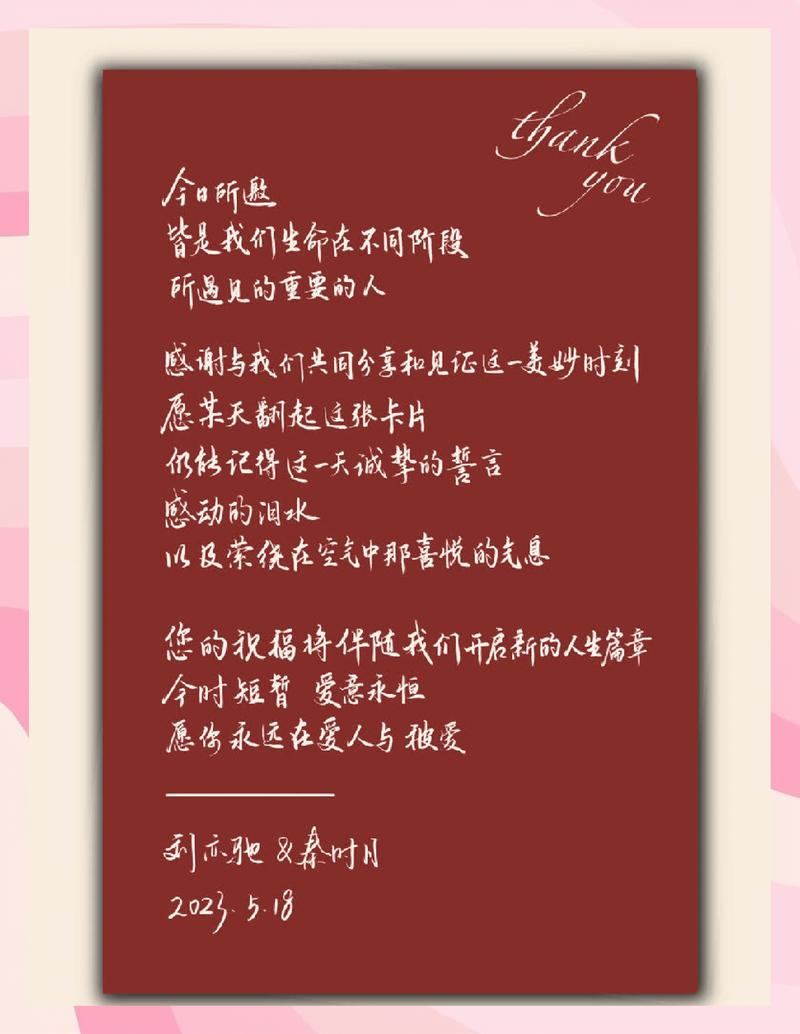 thank
you
今日所邀
皆是我们生命在不同阶段
所遇见的重要的人
感谢与我们共同分享和见证这一美妙时刻
愿某天翻起这张卡片
仍能记得这一天诚挚的誓言
感动的泪水
以及萦绕在空气中那喜悦的气息
您的祝福将伴随我们开启新的人生篇章
今时短暂 爱意永恒
愿你永远在爱人与被爱
刘亦驰 &秦时月
2023.5.18